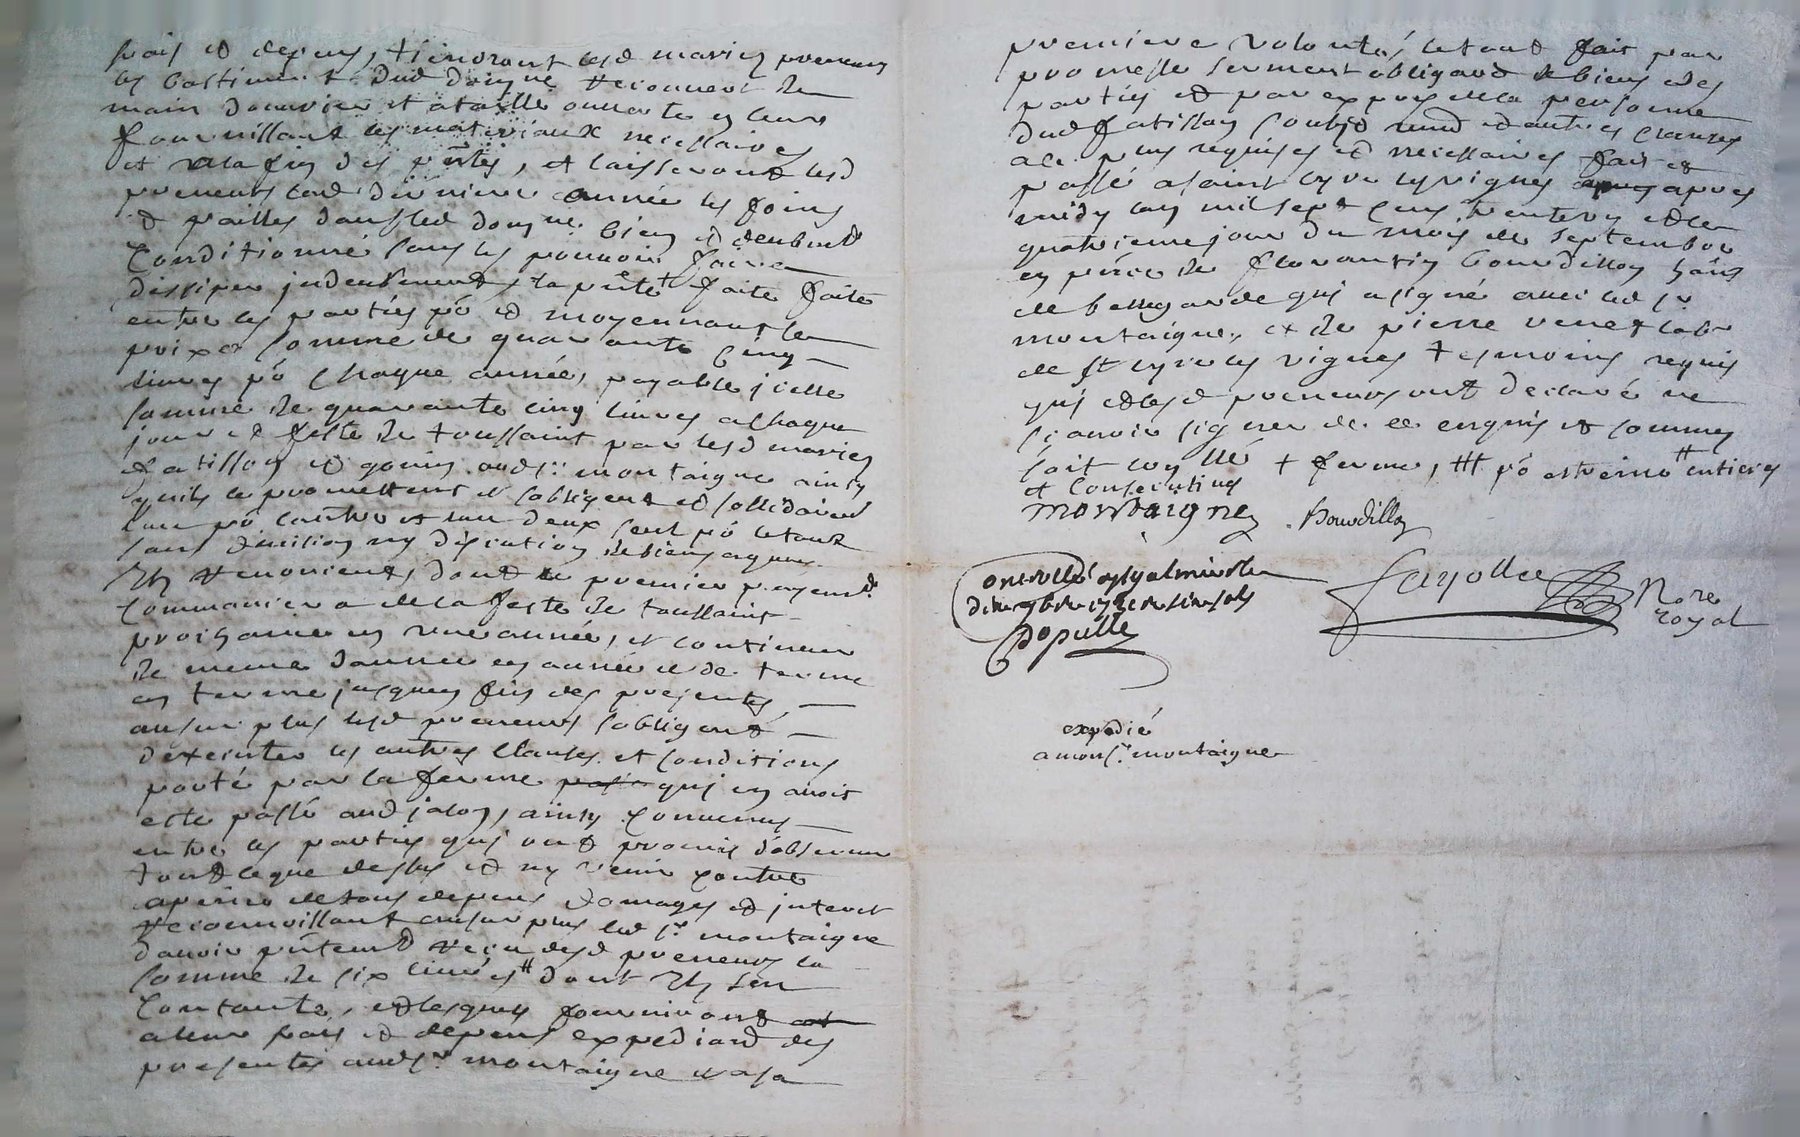 frais et depens, tiendront lesd mariez preneurs
les bastiment dud domaine recouvert de
main douvrier et a taille ouverte en leurs
fournissant les materiaux necessaires
et a la fin des p̄ntes, et laisseront lesd
preneurs lad derniere année les foins
& pailles dans led domne bien et deubmt
Conditionné sans les pouvoir faire
dissiper jndeubment, la p̄nte + faite faite
entre les parties po et moyennant le
prix et somme de quarante Cinq
livres po Chaque année, payable jcelle
somme de quarante cinq livres a Chaque
jour et feste de toussaint par lesd mariez
fatisson et gonin aud sr montaigne ainsy
quils le promettent et sobligent et sollidairemt
lun po lautre et lun deux seul po le tout
sans division ny discution de biens a quoy
Ils renoncent, dont le premier payemt
Commancera de la feste de toussaint
prochaine en une année, et continuer
de meme dannée en année et de terme
en terme jusques fin des presentes,
ausur plus lesd preneurs sobligent
dexecuter les autres Clauses et Conditions
porté par la ferme qui en avoit
esté passé aud jacoz, ainsy Convenus
entre les parties qui ont promis dobserver
tout ce que dessus et ny venir contre
a peine de tous depens domages et jnterest
Reconnoissant ausur plus led sr montaigne
davoir p̄ntemt reçu desd preneurs la
somme de six livres # dont Il sen
Contante, et lesquels fourniront
a leur frais et depens expediand des
presentes aud sr montaigne et a sa
premiere volonté, le tout fait par
promesse serment obligaon de biens desd
parties et par expres de la personne
dud fatisson soubz rend et autres clauses
a ce plus requises et necessaires fait et
passé a saint cyr les vignes apres
midy lan mil sept Cens trente et le
quatrieme jour du mois de septembre
en p̄nce de florantin Bourdillon
de bellegarde qui a signé avec led sr
montaigne, et de pierre venet labr
de st cyr les vignes tesmoins requis
qui et lesd preneurs ont declaré ne
scavoir signer de ce enquis et sommes
soit + ferme, ### po estreine ## entieres
et Consecutives
montaigne Bourdillon
Controllé
Populle
Fayolle Nore
royal
expedié
a monsr montaigne